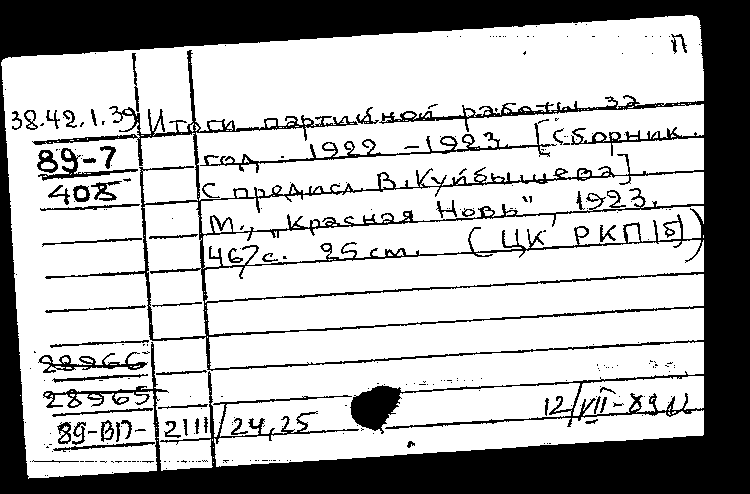 П
38.42.1.39 Итоги партийной работы за
89-7 год. 1922-1923. [Сборник.
408 С предисл В. Куйбышева].
М., „Красная Новь", 1923.
467 с. 25 см. (ЦК РКП(б))
28966
28965
89-ВП-2111/24,25 12/VII-89